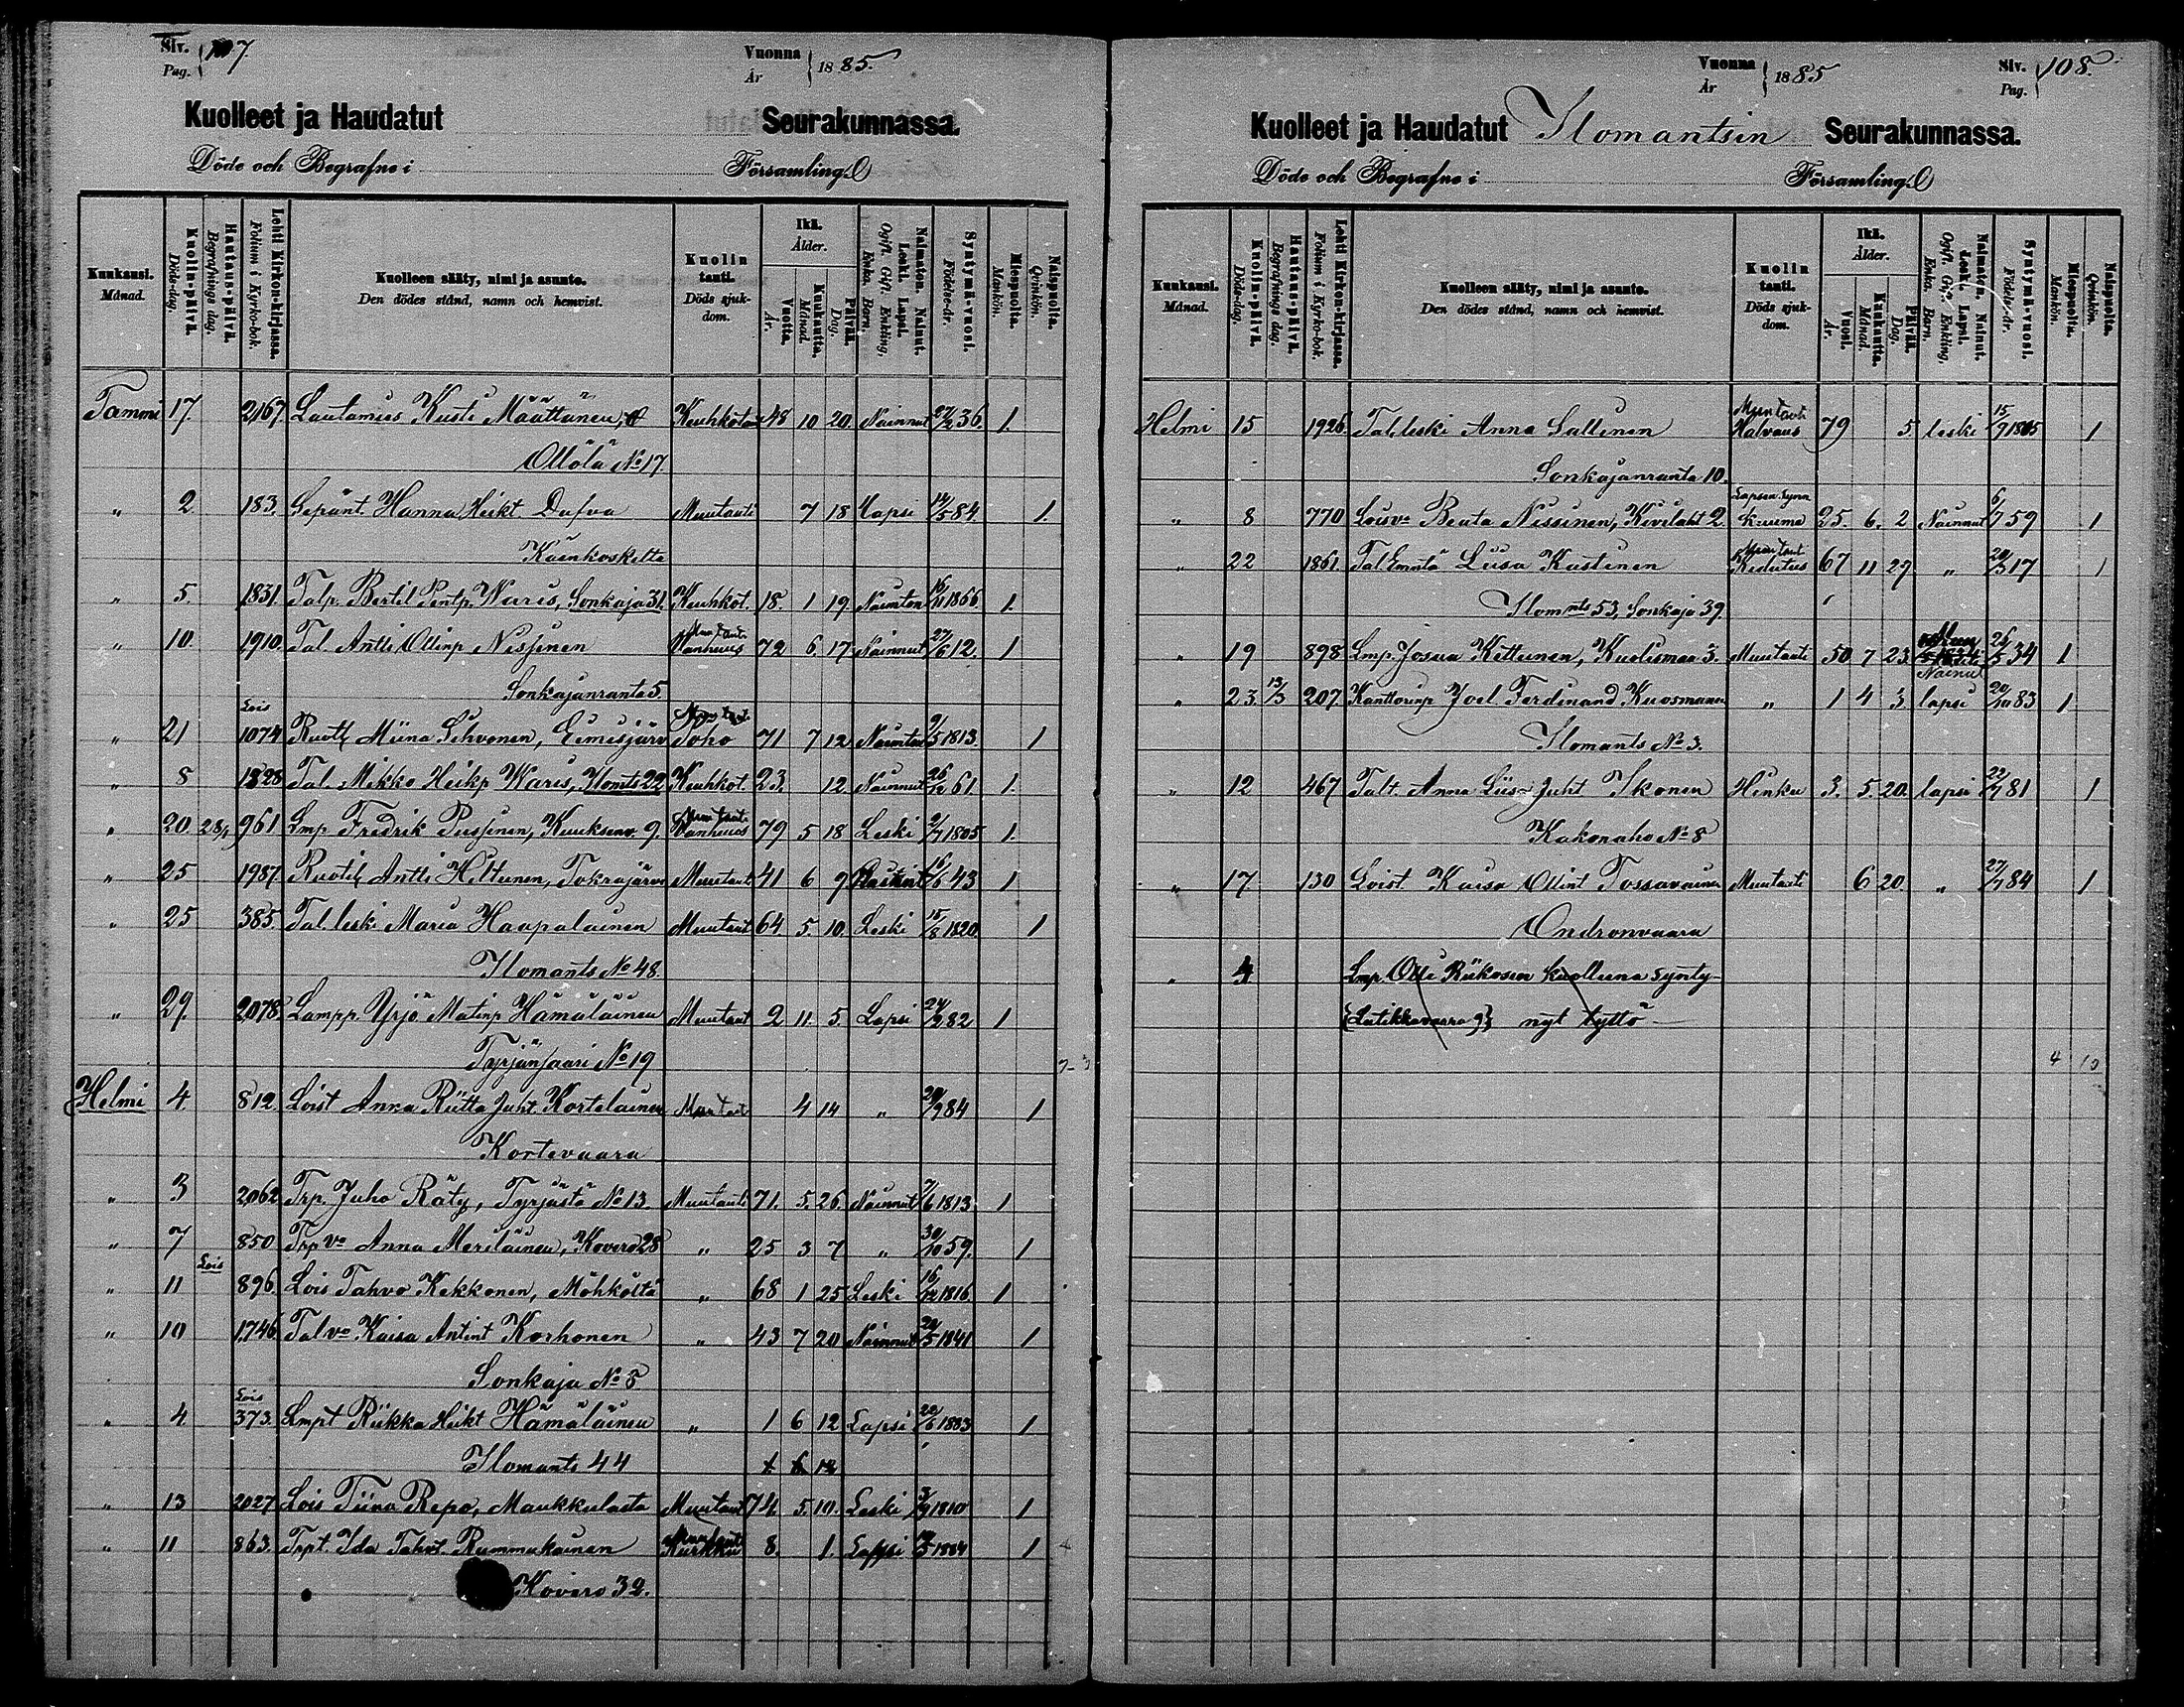 Siv. Pag. 107.
Vuonna År 1885.
Kuolleet ja Haudatut Seurakunnassa.
Döde och Begrafne i Församling.
Kuukausi. Månad.
Kuolin-päivä. Döds-dag.
Hautaus-päivä. Begrafnings dag.
Lehti Kirkon-kirjassa. Folium i Kyrko-bok.
Kuolleen sääty, nimi ja asunto. Den dödes stånd, namn och hemvist.
Kuolin tauti. Döds sjukdom.
Ikä. Ålder.
Vuotta. År.
Kuukautta. Månad.
Päivää. Dag.
Naimaton. Nainut. Leski. Lapsi. Ogift. Gift. Enkling. Enka. Barn.
Syntymä-vuosi. Födelse-år.
Miespuolta. Mankön.
Naispuolta. Qvinkön.
Tammi 17. 2167. Lautamies Kusti Määttänen, Keuhkotau 48 10 20. Nainnut 27/2 36. 1.
Ollola No 17.
" 2 183. Sepänt. Hanna Heikt. Dufva Muutauti 7 18 Lapsi 14/5 84. 1.
Käenkoskelta
" 5. 1831. Talp. Bertil Pentp. Waris, Sonkaja 31. Keuhkot. 18. 1 19 Naimton 16/11 1866 1.
" 10. 1910. Tal. Antti Ollinp Nissinen Muu tauti Vanhuus 72 6. 17 Nainnut 27/6 12. 1
Sonkajanranta 5.
Lois
" 21 1074 Ruotl Miina Sihvonen, Eimisjärv Muu taut Poho 71 7 12 Naimton 9/5 1813. 1
" 8 1828 Tal. Mikko Heikp Waris, Ilomts 22 Keuhkot. 23. 12 Nainnut 26/12 61. 1.
" 20 28/1 961 Lmp Fredrik Pussinen, Kuuksenv. 9. Muu tauti Vanhuus 79 5 18 Leski 2/7 1805 1.
" 25 1987 Ruotil Antti Hiltunen, Tokrajärv Muutaut 41 6 9 Nainnut 16/6 43 1
" 25 385. Tal. leski Maria Haapalainen Muutaut 64. 5. 10. Leski 15/8 1820. 1
Ilomants No 48.
" 29. 2078 Lampp. Yrjö Matinp Hämäläinen Muutaut 2 11. 5. Lapsi 24/2 82 1
Tyrjänsaari No 19
Helmi 4. 812. Loist Anna Riitta Juht. Kortelainen Muutaut 4 14 " 20/9 84 1
Kortevaara
" 3 2062 Trp. Juho Räty, Tyrjästä No 13. Muutauti 71. 5. 26. Nainnut 7/6 1813. 1
" 7 850 Trp vo Anna Meriläinen, Kovero 28 " 25 3 7 " 30/10 59. 1
Lois
" 11 896. Lois Tahvo Kekkonen, Möhköltä " 68 1 25 Leski 16/12 1816. 1
" 10 1746 Tal vo Kaisa Antint Korhonen " 43 7 20 Nainnut 20/5 1841 1
Sonkaja No 8
Lois
" 4. 373. Lmpt Riikka Heikt Hämäläinen " 1 6 12 Lapsi 22/6 1883 1
Ilomants 44 1 6 12
" 13 2027 Lois Tiina Repo, Maukkulasta Muutaut 74. 5. 10. Leski 3/9 1810 1
" 11 863. Trpt. Ida Tahvt. Rummukainen Muutauti Kurkku 8. 1. Lapsi 1884 1
Kovero 32.
Vuonna År 1885
Siv. Pag. 108.
Kuolleet ja Haudatut Ilomantsin Seurakunnassa.
Döde och Begrafne i Församling.
Kuukausi. Månad.
Kuolin-päivä. Döds-dag.
Hautaus-päivä. Begrafnings dag.
Lehti Kirkon-kirjassa. Folium i Kyrko-bok.
Kuolleen sääty, nimi ja asunto. Den dödes stånd, namn och hemvist.
Kuolin tauti. Döds sjukdom.
Ikä. Ålder.
Vuosi. År.
Kuukautta. Månad.
Päivää. Dag.
Naimaton. Nainut. Leski. Lapsi. Ogift. Gift. Enkling. Enka. Barn.
Syntymä-vuosi. Födelse-år.
Miespuolta. Mankön.
Naispuolta. Qvinkön.
Helmi 15 1926. Tal. leski Anna Sallinen Muutauti Halvaus 79 5 leski 15/9 1805 1
Sonkajanranta 10.
" 8 770 Loisvo Beata Nissinen, Kivilaht 2. Lapsen synn kuume 25. 6. 2 Nainnut 6/7 59 1
" 22 1861 Tal Emäntä Liisa Kustinen Muu taut Kidutus 67 11 27 " 17 1
Ilomnts 53, Sonkaja 39.
" 19 898 Lmp. Josua Kettunen, Kuolismaa 3. Muutauti 50 7 23 Nainut 26/5 34 1
" 23. 13/3 207. Kanttorinp Joel Ferdinand Kuosmanen " 1 4 3 lapsi 20/10 83 1
Ilomants No 3.
" 12 467 Talt. Anna Liisa Juht Ikonen Hinku 3. 5. 20. lapsi 22/7 81 1
Kakonaho No 8
" 17. 130 Loist. Kaisa Ollint Tossavainen Muutauti 6 20 " 27/7 84 1
Ondronvaara
" 4 Lmp. Olli Riikosen kuolluna synty-
{Lutikkavaara 9} nyt tyttö
4 10